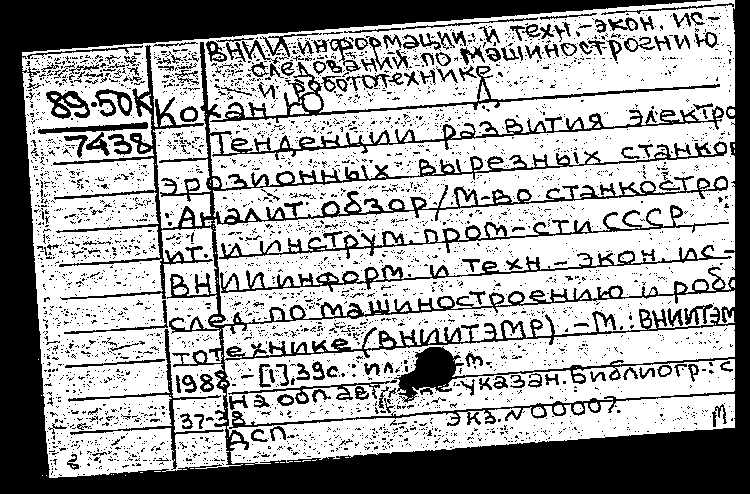 ВНИИ информации и техн.-экон. ис-
следований по машиностроению
и робототехнике.
89-50К Кохан, Ю Д
7438 Тенденции развития электро
эрозионных вырезных станков
: Аналит. обзор / М-во станкостро-
ит. и инструм. пром-сти СССР,
ВНИИ информ. и техн.-экон. ис-
след. по машиностроению и робо
тотехнике (ВНИИТЭМР). – М.: ВНИИТЭМ
1988. – [1], 39с.: ил.; т.
На обл. авт. указан. Библиогр.: с
37-38. экз. N 00007.
ДСП.